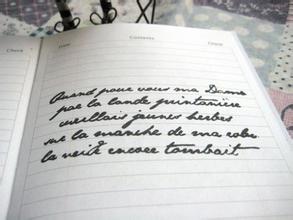 Check
Date
Contents
Check
Quand pour vous ma Dame
par la lande printanière
cueillais jeunes herbes
sur la manche de ma robe
la neige encore tombait